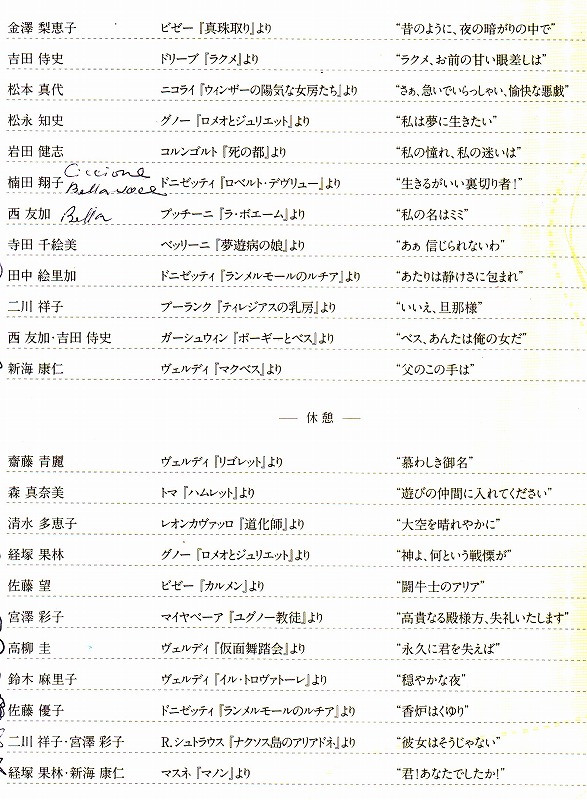 金澤 梨恵子 ビゼー『真珠取り』より “昔のように、夜の暗がりの中で”
吉田 侍史 ドリーブ『ラクメ』より “ラクメ、お前の甘い眼差しは”
松本 真代 ニコライ『ウィンザーの陽気な女房たち』より “さぁ、急いでいらっしゃい、愉快な悪戯”
松永 知史 グノー『ロメオとジュリエット』より “私は夢に生きたい”
岩田 健志 コルンゴルト『死の都』より “私の憧れ、私の迷いは”
Ciccione
楠田 翔子 Bella voce ドニゼッティ『ロベルト・デヴリュー』より “生きるがいい裏切り者!”
西 友加 Bella プッチーニ『ラ・ボエーム』より “私の名はミミ”
寺田 千絵美 ベッリーニ『夢遊病の娘』より “あぁ 信じられないわ”
田中 絵里加 ドニゼッティ『ランメルモールのルチア』より “あたりは静けさに包まれ”
二川 祥子 プーランク『ティレジアスの乳房』より “いいえ、旦那様”
西 友加・吉田 侍史 ガーシュウィン『ポーギーとベス』より “ベス、あんたは俺の女だ”
新海 康仁 ヴェルディ『マクベス』より “父のこの手は”
— 休憩 —
齋藤 青麗 ヴェルディ『リゴレット』より “慕わしき御名”
森 真奈美 トマ『ハムレット』より “遊びの仲間に入れてください”
清水 多恵子 レオンカヴァッロ『道化師』より “大空を晴れやかに”
経塚 果林 グノー『ロメオとジュリエット』より “神よ、何という戦慄が”
佐藤 望 ビゼー『カルメン』より “闘牛士のアリア”
宮澤 彩子 マイヤベーア『ユグノー教徒』より “高貴なる殿様方、失礼いたします”
高柳 圭 ヴェルディ『仮面舞踏会』より “永久に君を失えば”
鈴木 麻里子 ヴェルディ『イル・トロヴァトーレ』より “穏やかな夜”
佐藤 優子 ドニゼッティ『ランメルモールのルチア』より “香炉はくゆり”
二川 祥子・宮澤 彩子 R.シュトラウス『ナクソス島のアリアドネ』より “彼女はそうじゃない”
経塚 果林・新海 康仁 マスネ『マノン』より “君!あなたでしたか!”